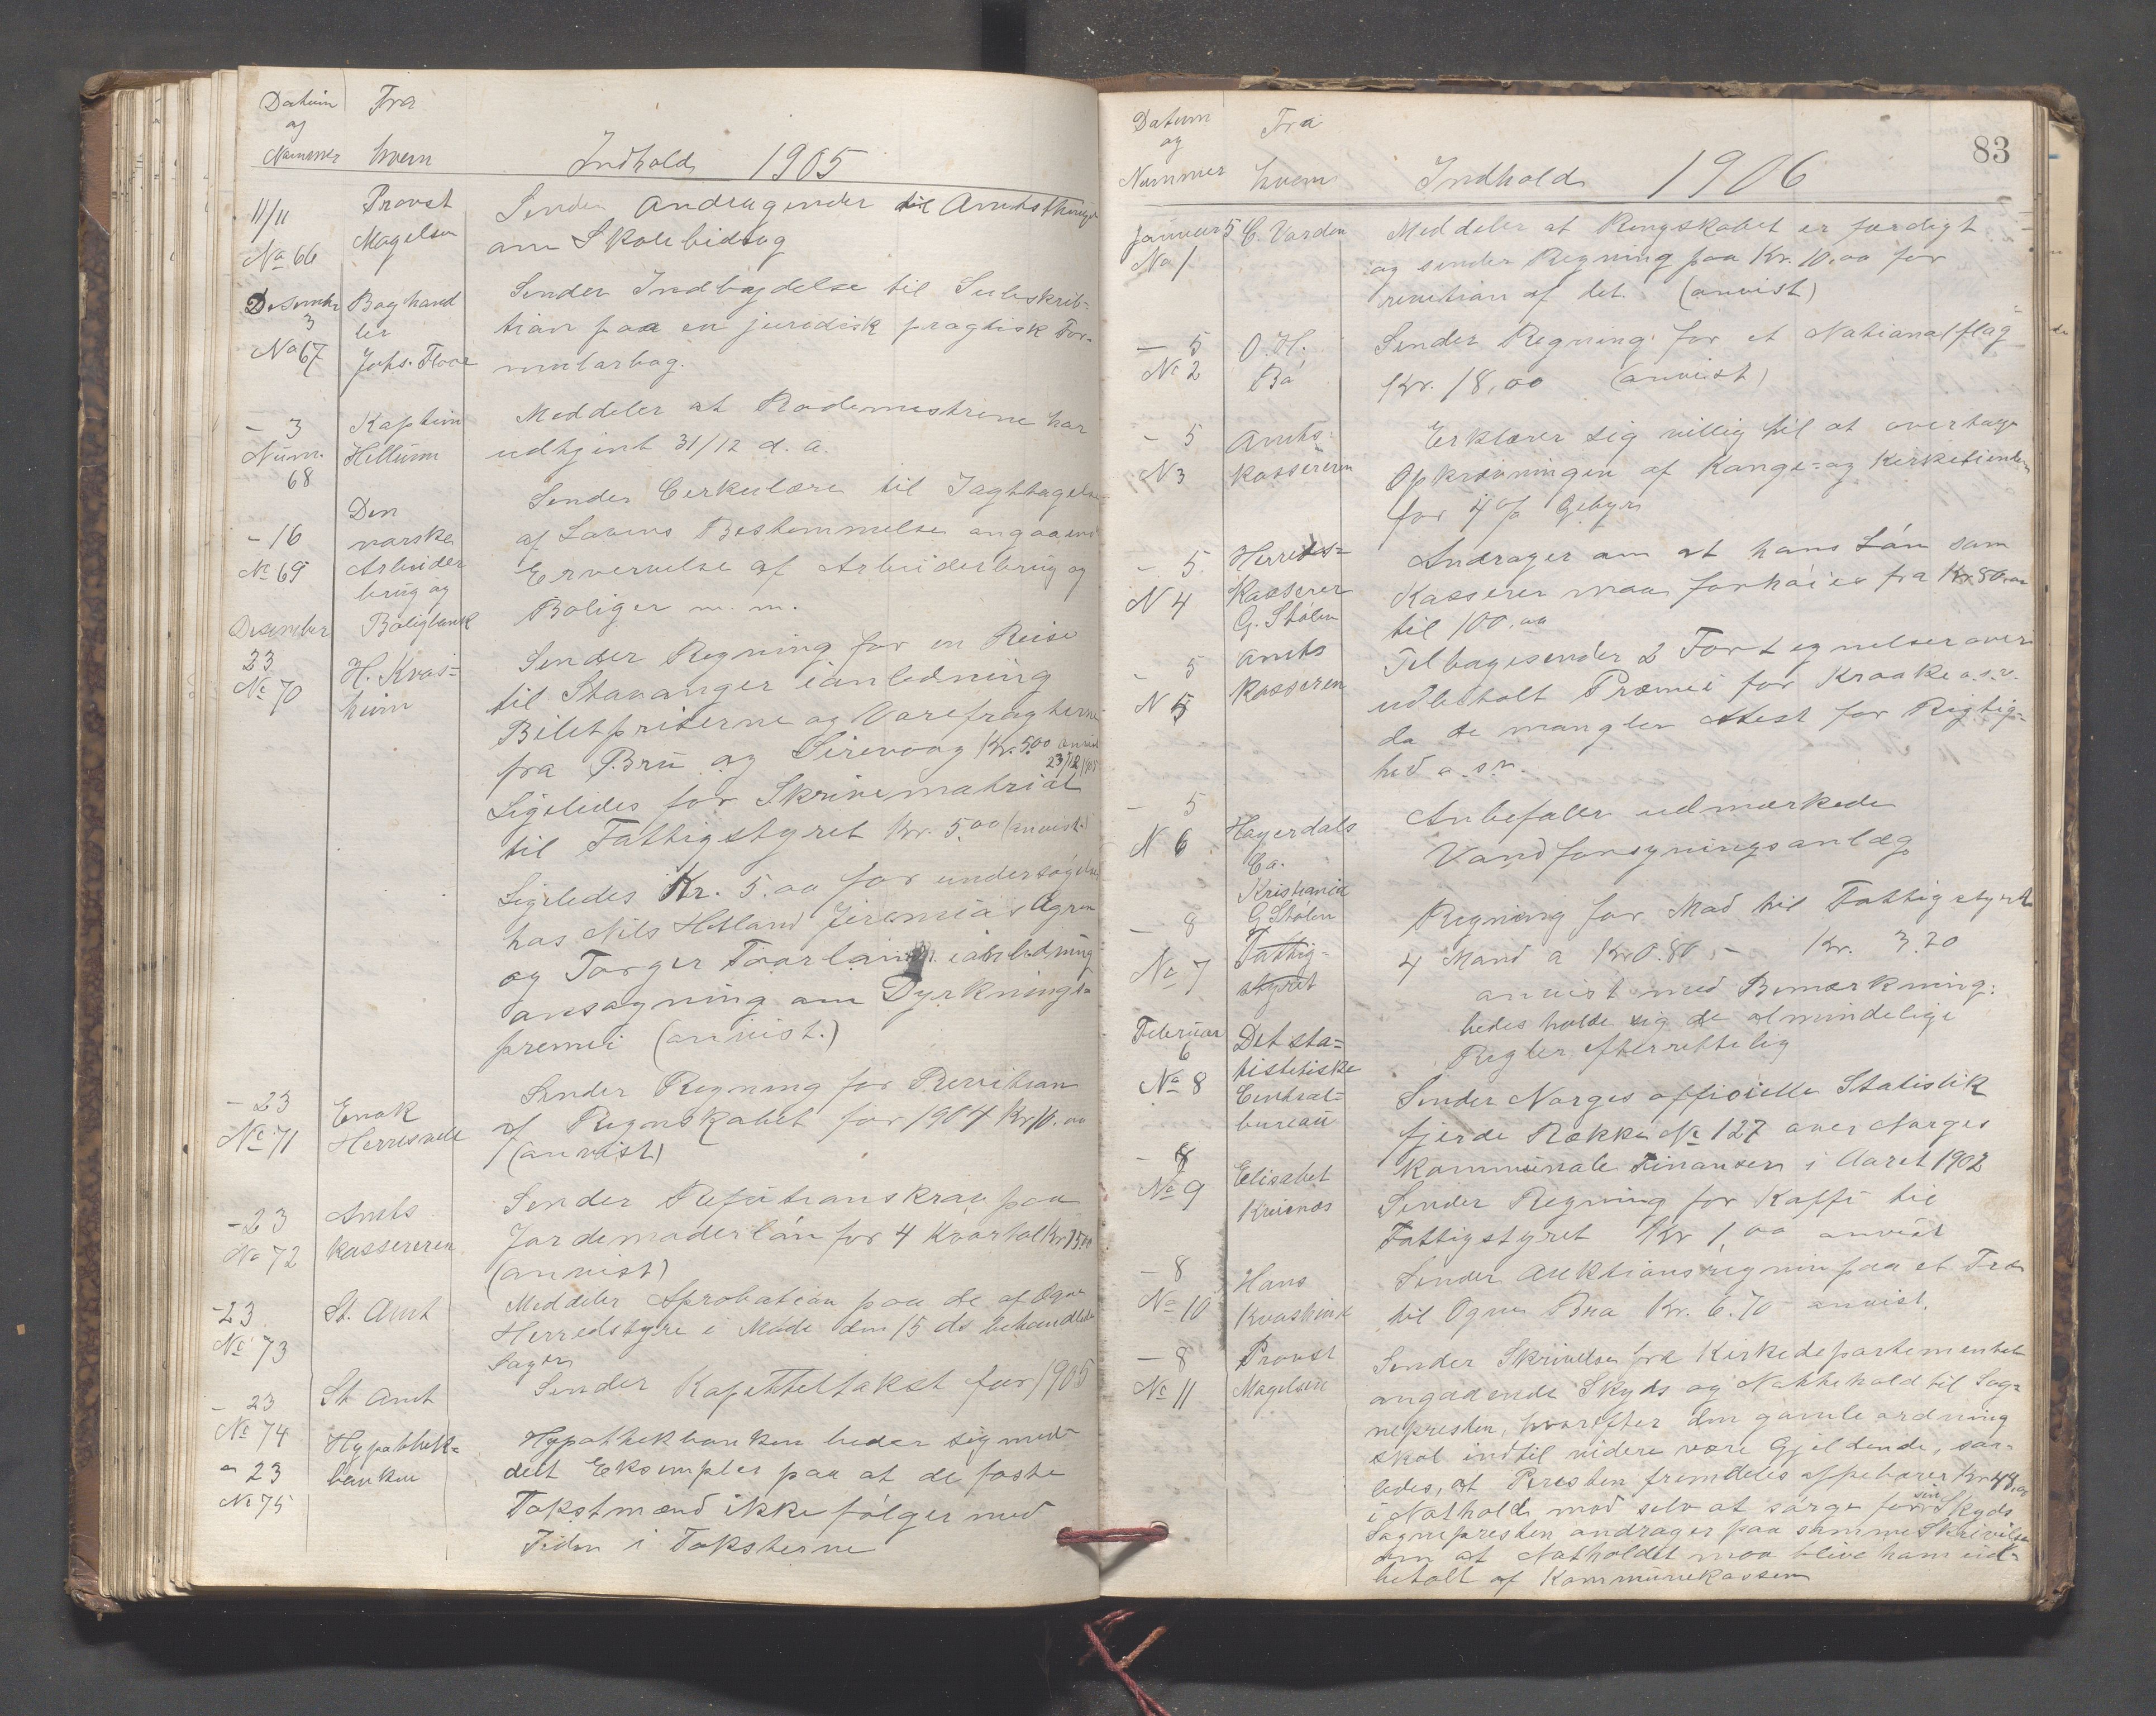 Datum Fra
og
Nummer hvem Indhold 1905
11/11 Provst Sender Andragender til Amtsthinget
No 66 Magelsen om Skolebidrag
Desember Boghand Sender Indbydelse til Subskrib-
3 ler tion paa en juridisk pragtisk For-
No 67 Johs. Floor mularbog.
– 3 Kaptein Meddeler at Rodemestrene har
Num. Hellum udtjent 31/12 d. a.
68
Den Sender Cerkulære til Iagttagelse
– 16 norske af Lovens Bestemmelse angaaend
No 69 Arbeider Ervervelse af Arbeiderbrug og
brug og Boliger m. m.
Desember Boligbank
23 H. Kvas= Sender Regning for en Reise
No 70 heim til Stavanger ianledning
Biletpriserne og Varefragterne
fra Bru og Sirevaag Kr. 5.00 anvist
23/12 1905
Ligeledes for Skrivematrial
til Fattigstyret Kr. 5.00 (anvist.)
Ligeledes Kr. 5.00 for undersøgelse
hos Nils Hetland Jeremias Ogren
og Torger Taarland ianledning
ansøgning om Dyrknings=
premei (anvist.)
– 23 Enok Sender Regning for Revition
No 71 Herresvele af Regnskabet for 1904 Kr 10.00
(anvist)
– 23 Amts Sender Refutionskrav paa
No 72 kassereren Jordemoderløn for 4 Kvartal Kr 15.00
(anvist)
– 23 St. Amt Meddeler Aprobation paa de af Ogne
No 73 Herredstyre i Møde den 15 ds behandlede
Sager
– 23 St. Amt Sender Kapitteltakst for 1905
No 74
– 23 Hypothek= Hypothekbanken beder sig med-
No 75 banken delt Eksempler paa at de faste
Takstmænd ikke følger med
Tiden i Taksterne
83
Datum Fra
og
Nummer hvem Indhold 1906
Januar 5 C. Varden Meddeler at Rengskabet er færdigt
No 1 og sender Regning paa Kr. 10.00 for
revition af det. (anvist)
– 5 O. H. Sender Regning for et Nationalflag
No 2 Bø Kr. 18,00 (anvist)
– 5 Amts= Erklærer sig villig til at overtage
N 3 kassereren Opkrævningen af Konge- og Kerketienden
for 4 % Gebyr
– 5 Herreds= Andrager om at hans Løn som
N 4 Kasserer Kasserer maa forhøies fra Kr. 80.00
G. Stølen til 100.00
– 5 Amts Tilbagesender 2 Fortegnelser over
N 5 kasseren udbetalt Præmei for Kraake o.s.v.
da de mangler Attest for Rigtig=
hed o.s.v.
– 5 Anbefaler udmærkede
N 6 Høyerdals Vandforsyningsanlæg
Co.
Kristiania
– 8 G. Stølen Regning for Mad til Fattigstyret
No 7 Fattig- 4 Mand a Kr 0.80 – Kr. 3.20
styret anvist med Bemærkning:
bedes holde sig de almindelige
Regler efterrettelig
Februar Det sta=
6 tistetiske
No 8 Central= Sender Norges officielle Statistik
bureau fjerde Række No 127 over Norges
kommunale Finanser i Aaret 1902
– 8 Elisabet Sender Regning for Kaffe til
No 9 Kreinæs Fattigstyret Kr 1,00 anvist
– 8 Hans Sender Auktionsregnin paa et Træ
No 10 Kvasheim til Ogne Bru Kr. 6.70 anvist.
– 8 Provst Sender Skrivelse fra Kirkedepartementet
No 11 Magelsen angaaende Skyds og Natteholdtil Sog=
nepresten, hvorefter den gamle ordning
skal indtil videre være Gjeldende, saa-
ledes, at Presten fremdeles oppebærer Kr 48,00
i Nathold mod selv at sørge for sin Skyds
Sognepresten andrager paa samme Skrivelse
om at Natholdet maa blive ham ud-
betalt af Kommunekassen